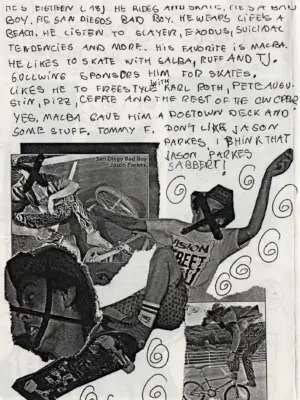 HES EIGHTEEN (18) HE RIDES AND SKATE, HE'S A BAD
BOY, HE SAN DIEGOS BAD BOY. HE WEARS LIFE'S A
BEACH. HE LISTEN TO SLAYER, EXODUS, SUICIDAL
TENDENCIES AND MORE. HIS FAVORITE IS MALBA.
HE LIKES TO SKATE WITH SALBA, RUFF AND TJ.
GULLWING SPONSORS HIM FOR SKATES.
LIKES HE TO FREESTYLE WITH KARL ROTH, PETE AUGU-
STIN, DIZZ, CEPPIE AND THE REST OF THE CW
YES, MALBA GAVE HIM A DOGTOWN DECK AND
SOME STUFF. TOMMY F. DON'T LIKE JASON
PARKES, I THINK THAT
JASON PARKES
SABBERT!
San Diego Bad Boy
Jason Parkes
VISION
STREET